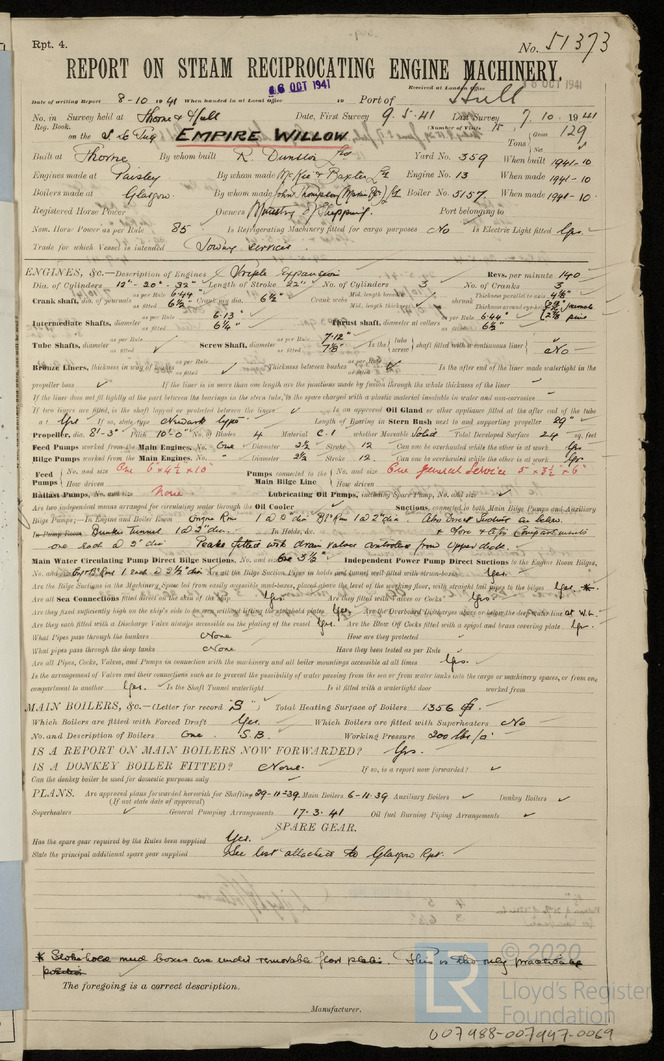 Rpt. 4.
No. 51373
REPORT ON STEAM RECIPROCATING ENGINE MACHINERY.
Received at London Office 18 OCT 1941
Date of writing Report 8-10-1941 When handed in at Local Office 16 OCT 1941 19 Port of Hull
No. in Survey held at Thorne & Hull Date, First Survey 9.5.41 Last Survey 7.10.1941
Reg. Book. (Number of Visits 15)
on the EMPIRE WILLOW Tons Gross 129
Net
Built at Thorne By whom built R. Dunston Ltd Yard No. 359 When built 1941-10
Engines made at Paisley By whom made McKie & Baxter Ltd Engine No. 13 When made 1941-10
Boilers made at Glasgow By whom made John Thompson Ltd Boiler No. 5157 When made 1941-10
Registered Horse Power Owners Ministry of Shipping. Port belonging to
Nom. Horse Power as per Rule 85 Is Refrigerating Machinery fitted for cargo purposes No Is Electric Light fitted Yes.
Trade for which Vessel is intended Towing services.
ENGINES, &c.—Description of Engines Triple Expansion Revs. per minute 140
Dia. of Cylinders 12" - 20" - 32" Length of Stroke 22" No. of Cylinders 3 No. of Cranks 3
Crank shaft, dia. of journals as per Rule 6.44" as fitted 6½" Crank pin dia. 6½" Crank webs Mid. length breadth Mid. length thickness shrunk Thickness parallel to axis 4⅛" Thickness around eye-hole journals pins
Intermediate Shafts, diameter as per Rule 6.13" as fitted 6¼" Thrust shaft, diameter at collars as per Rule 6.44" as fitted 6½"
Tube Shafts, diameter as per Rule as fitted Screw Shaft, diameter as per Rule 7.12" as fitted 7⅛" Is the tube screw shaft fitted with a continuous liner No
Bronze Liners, thickness in way of bushes as per Rule as fitted Thickness between bushes as per Rule as fitted Is the after end of the liner made watertight in the
propeller boss If the liner is in more than one length are the junctions made by fusion through the whole thickness of the liner
If the liner does not fit tightly at the part between the bearings in the stern tube, is the space charged with a plastic material insoluble in water and non-corrosive
If two liners are fitted, is the shaft lapped or protected between the liners Is an approved Oil Gland or other appliance fitted at the after end of the tube
shaft Yes If so, state type Newark type Length of Bearing in Stern Bush next to and supporting propeller 29"
Propeller, dia. 8'-3" Pitch 10'-0" No. of Blades 4 Material C.I whether Moveable Solid Total Developed Surface 24 sq. feet
Feed Pumps worked from the Main Engines, No. One Diameter 2½ Stroke 12 Can one be overhauled while the other is at work Yes
Bilge Pumps worked from the Main Engines, No. One Diameter 2½ Stroke 12. Can one be overhauled while the other is at work Yes.
Feed Pumps No. and size One 6 x 4½ x 10" How driven Pumps connected to the Main Bilge Line No. and size One General Service 5" x 3½" x 6" How driven
Ballast Pumps, No. and size None Lubricating Oil Pumps, including Spare Pump, No. and size
Are two independent means arranged for circulating water through the Oil Cooler Suctions, connected to both Main Bilge Pumps and Auxiliary
Bilge Pumps;—In Engine and Boiler Room Also Direct Suction as below.
In Pump Room Bunker Tunnel In Holds, &c. & Fore & Afts Compartments
one each @ 2" dia. Peaks fitted with drain valves controlled from upper deck.
Main Water Circulating Pump Direct Bilge Suctions, No. and size One 3½" Independent Power Pump Direct Suctions to the Engine Room Bilges,
No. and size Are all the Bilge Suction Pipes in holds and tunnel well fitted with strum-boxes Yes.
Are the Bilge Suctions in the Machinery Space led from easily accessible mud-boxes, placed above the level of the working floor, with straight tail pipes to the bilges Yes *
Are all Sea Connections fitted direct on the skin of the ship Yes. Are they fitted with Valves or Cocks Yes.
Are they fixed sufficiently high on the ship's side to be seen without lifting the stokehold plates Yes Are the Overboard Discharges above or below the deep water line at W.L.
Are they each fitted with a Discharge Valve always accessible on the plating of the vessel Yes. Are the Blow Off Cocks fitted with a spigot and brass covering plate Yes.
What Pipes pass through the bunkers None How are they protected
What pipes pass through the deep tanks None Have they been tested as per Rule
Are all Pipes, Cocks, Valves, and Pumps in connection with the machinery and all boiler mountings accessible at all times Yes.
Is the arrangement of Valves and their connections such as to prevent the possibility of water passing from the sea or from water tanks into the cargo or machinery spaces, or from one
compartment to another Yes. Is the Shaft Tunnel watertight Is it fitted with a watertight door worked from
MAIN BOILERS, &c.—(Letter for record S) Total Heating Surface of Boilers 1356 ft.
Which Boilers are fitted with Forced Draft Yes. Which Boilers are fitted with Superheaters No
No. and Description of Boilers One S.B. Working Pressure 200 lbs/□"
IS A REPORT ON MAIN BOILERS NOW FORWARDED? Yes.
IS A DONKEY BOILER FITTED? None. If so, is a report now forwarded?
Can the donkey boiler be used for domestic purposes only
PLANS. Are approved plans forwarded herewith for Shafting 29-11-39 Main Boilers 6-11-39 Auxiliary Boilers Donkey Boilers
(If not state date of approval)
Superheaters General Pumping Arrangements 17-3-41 Oil fuel Burning Piping Arrangements
SPARE GEAR.
Has the spare gear required by the Rules been supplied Yes.
State the principal additional spare gear supplied See list attached to Glasgow Rpt.
* Stokehold mud boxes are under removable floor plates. This is the only practicable
position
The foregoing is a correct description.
Manufacturer.
© 2020
LR
Lloyd's Register
Foundation
007988-007997-0069